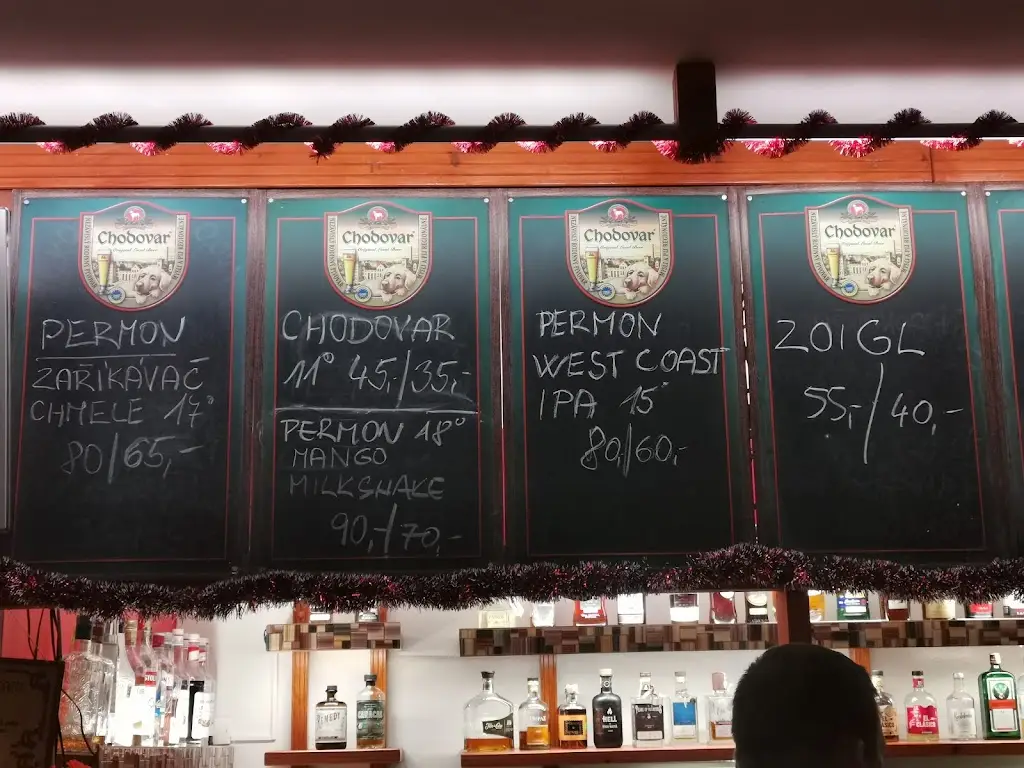 Chodovar
PERMON
ZAŘÍKÁVAČ
CHMELE 17°
80/65,-
Chodovar
CHODOVAR
11° 45,-/35,-
PERMON 18°
MANGO
MILKSHAKE
90,-/70,-
Chodovar
PERMON
WEST COAST
IPA 15°
80,-/60,-
Chodovar
ZOIGL
55,-/40,-
REMEDY
HELL